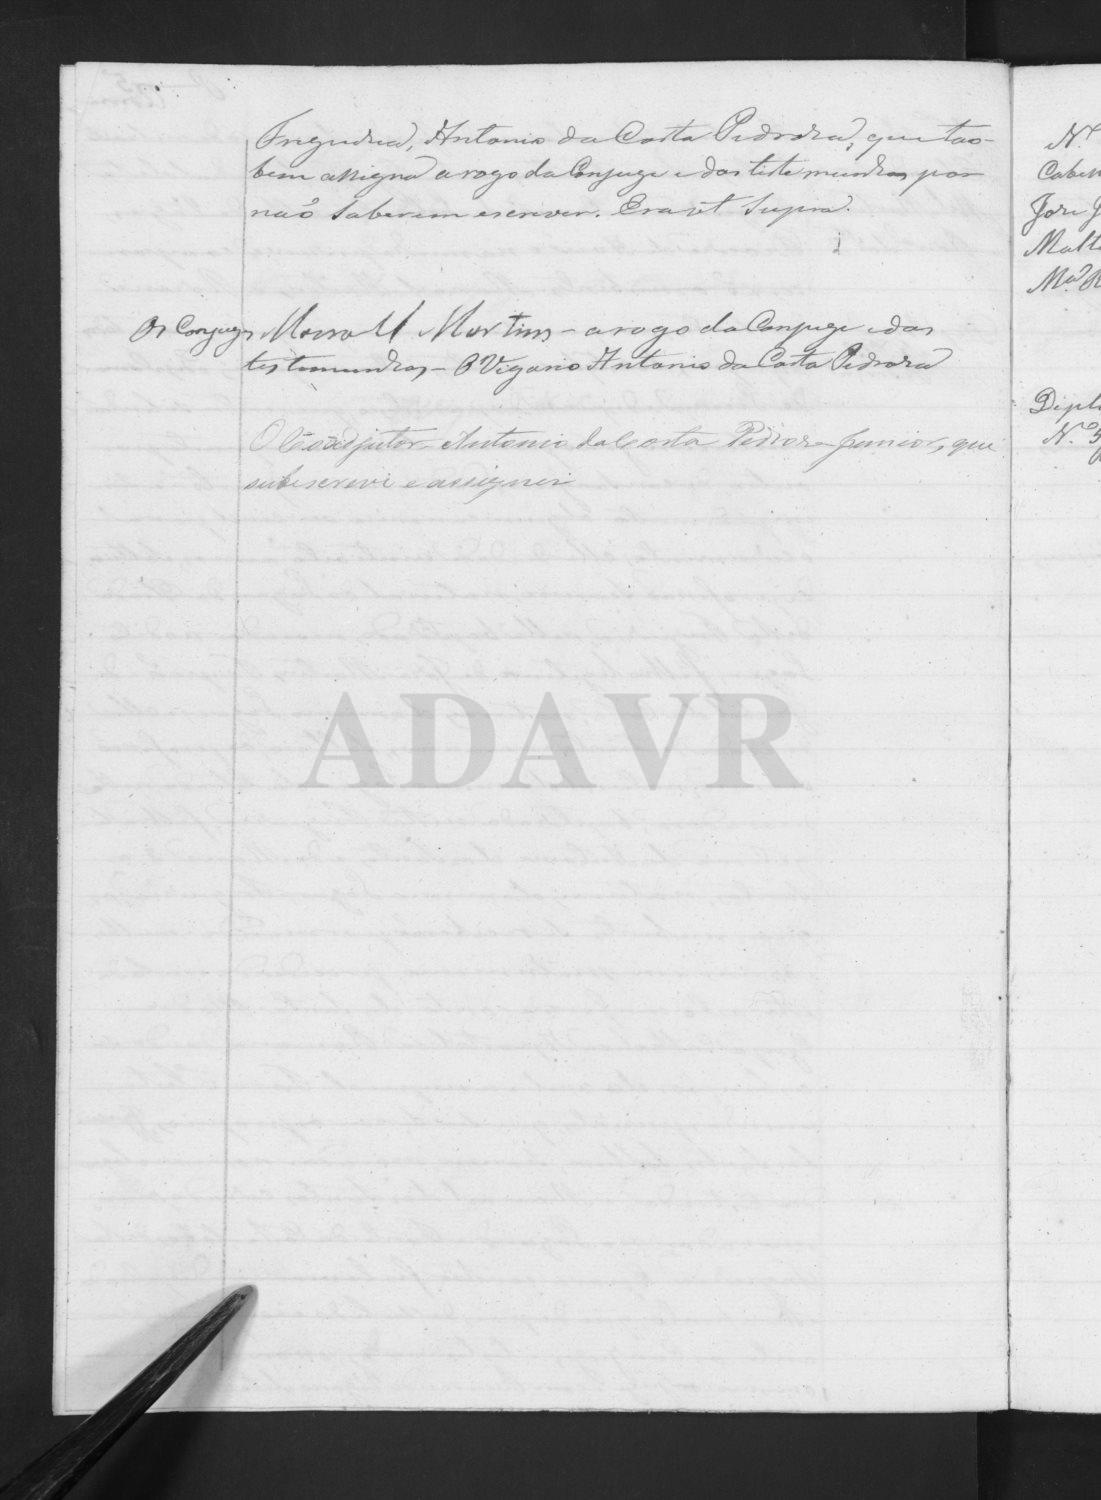 Freguesia, Antonio da Costa Pedroza, que tao-
bem assigna a rogo da Conjuge e das testemunhas por
naõ saberem escrever. Era ut supra.
Os Conjuges Martins - a rogo da Conjuge e das
testemunhas - O Vigario Antonio da Costa Pedroza
O Coadjutor - Antonio da Costa Pedroza Junior, que
subescrevi e assignei
Nº
Jose
Matt
Mª
Nº
ADAVR